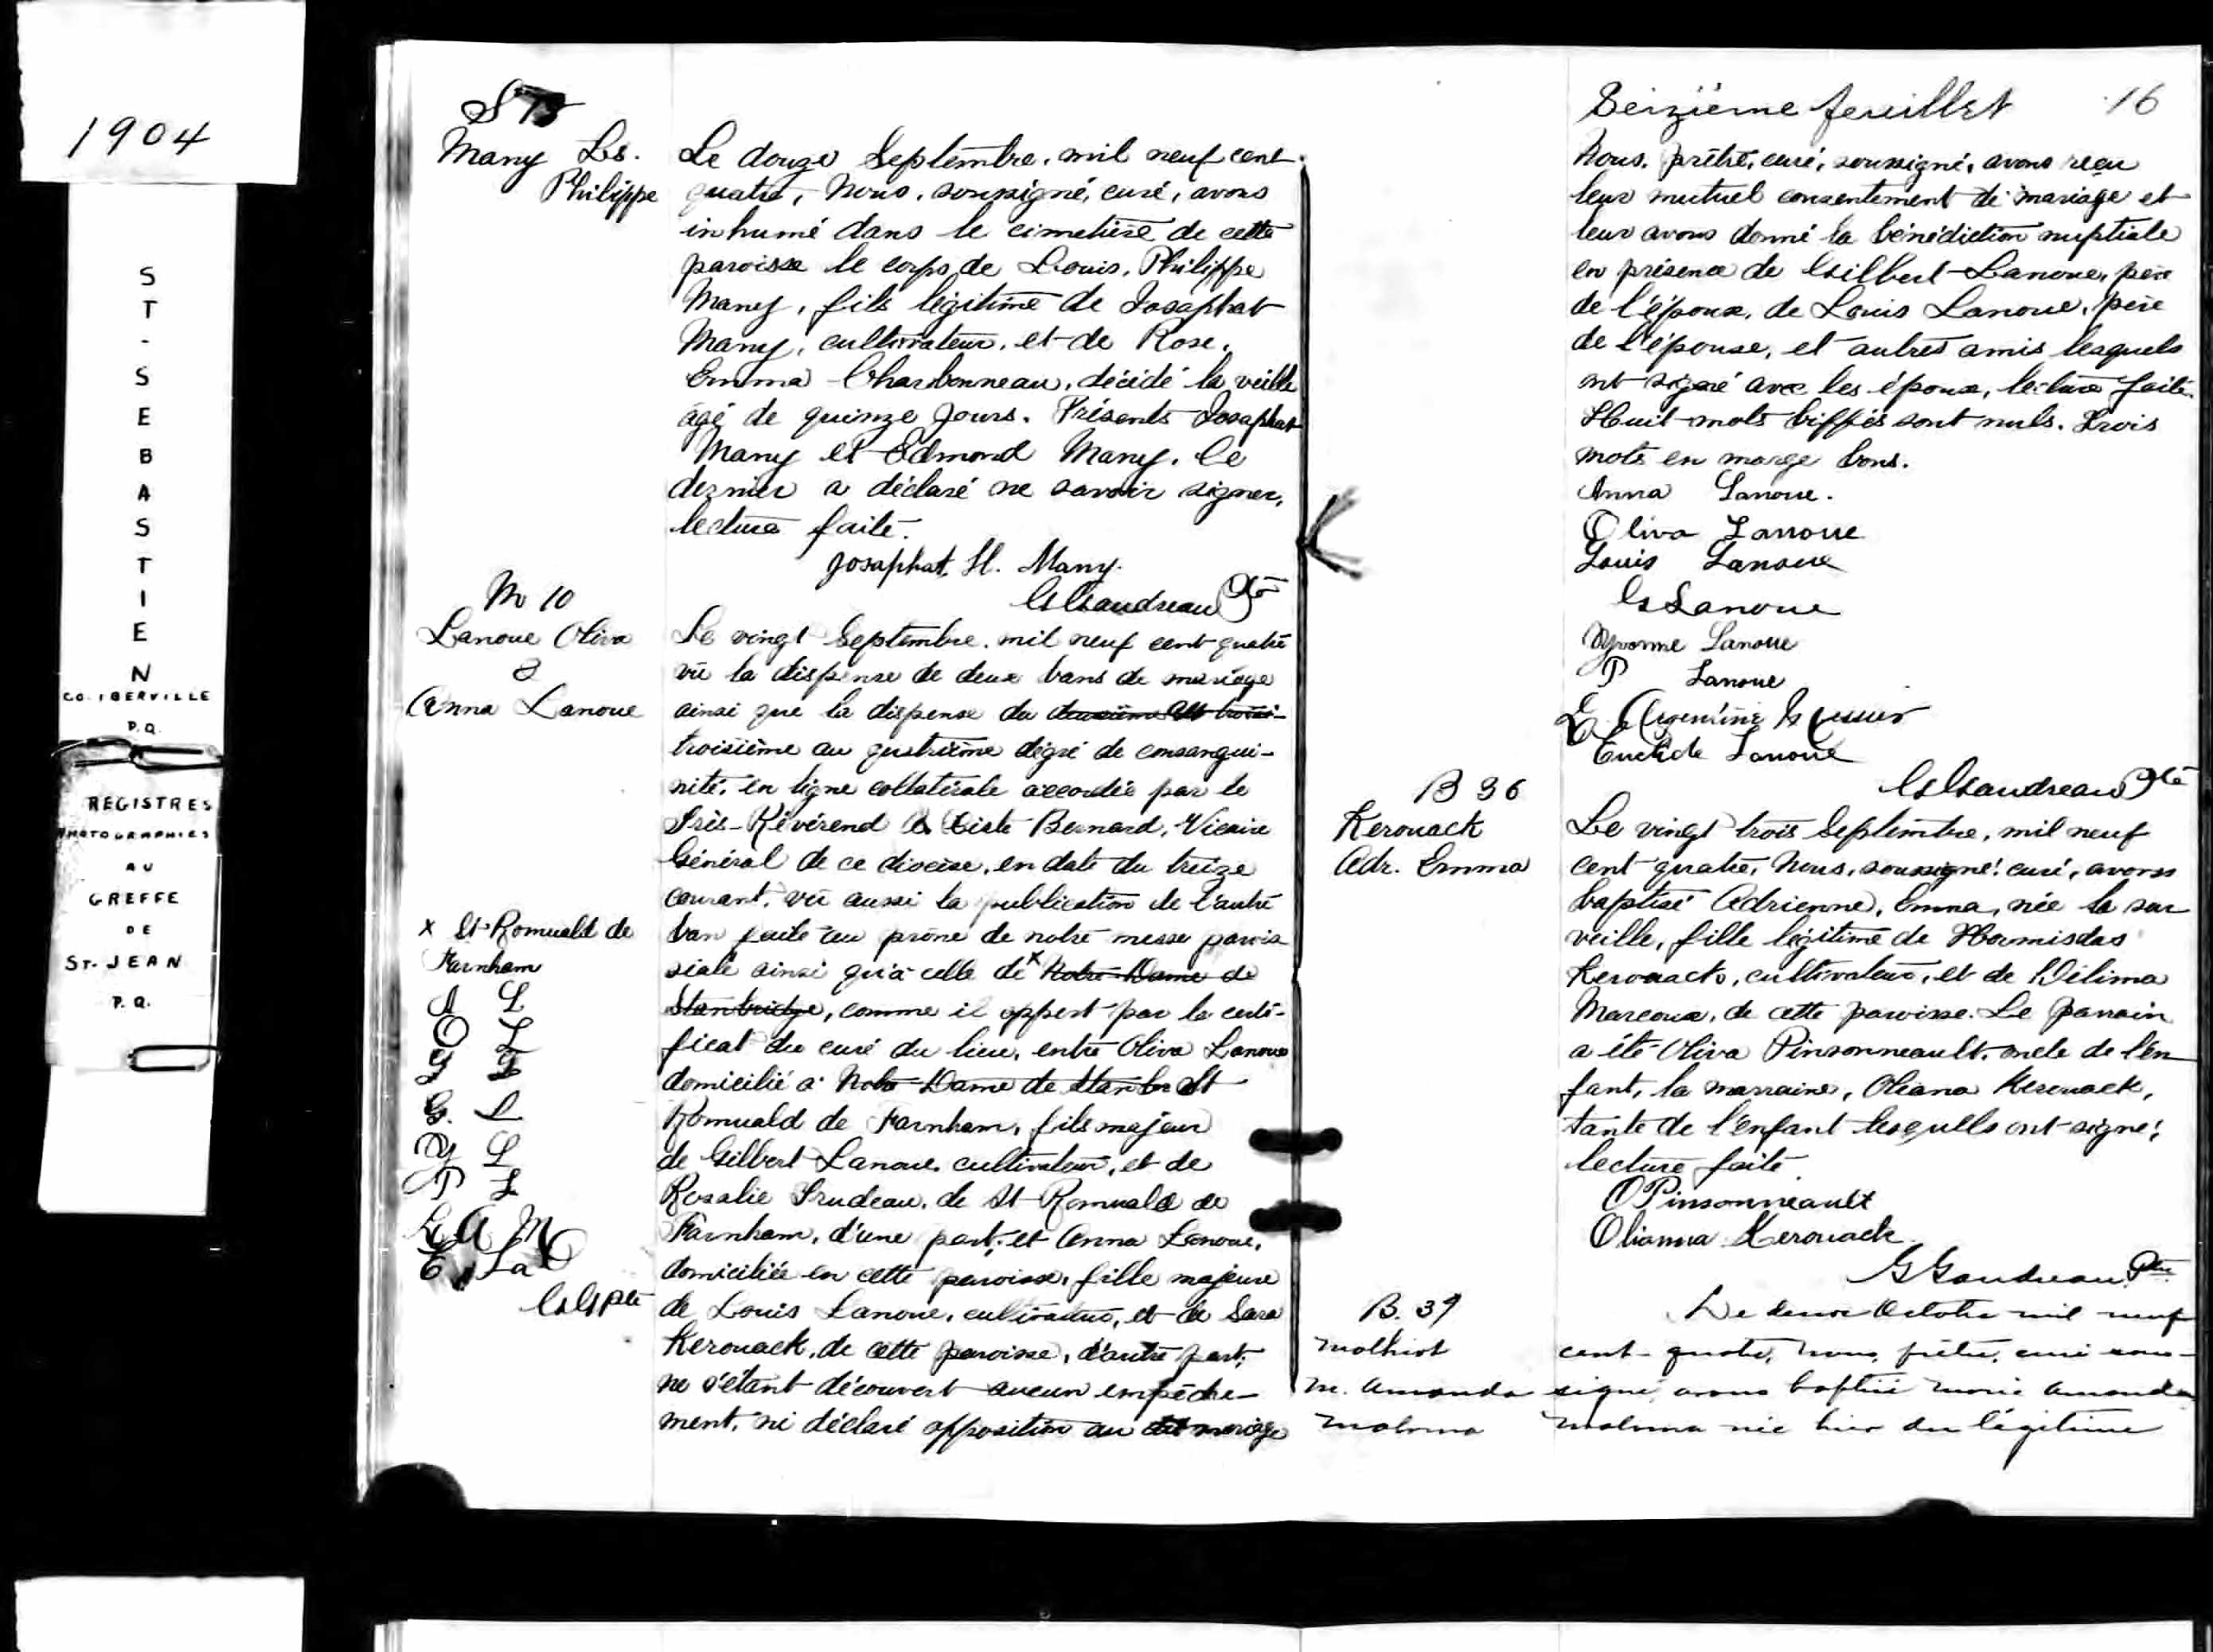 1904
ST-SEBASTIEN
CO. IBERVILLE
P.Q.
REGISTRES
PHOTOGRAPHIES
AU
GREFFE
DE
ST-JEAN
P.Q.
S
Many Ls.
Philippe
Le douze Septembre, mil neuf cent
quatre, Nous, soussigné, curé, avons
inhumé dans le cimetière de cette
paroisse le corps de Louis, Philippe
Many, fils légitime de Josaphat
Many, cultivateur, et de Rose,
Emma Charbonneau, décédé la veille
âgé de quinze jours. Présents Josaphat
Many et Edmond Many. Ce
dernier a déclaré ne savoir signer,
lecture faite.
Josaphat. H. Many.
G Gaudreau Ptre
M 10
Lanoue Oliva
&
Anna Lanoue
Le vingt Septembre, mil neuf cent quatre
vu la dispense de deux bans de mariage
ainsi que la dispense du deuxième au troisi-
troisième au quatrième dégré de consangui-
nité, en ligne collatérale accordée par le
Très-Révérend Bernard, Vicaire
Général de ce diocèse, en date du treize
courant, vu aussi la publication de l'autre
ban faite au prône de notre messe parois
siale ainsi qu'à celle de x Notre-Dame de
Stanbridge, comme il appert par le certi-
ficat du curé du lieu, entre Oliva Lanoue
domicilié à Notre-Dame de Stanbr St
Romuald de Farnham, fils majeur
de Gilbert Lanoue, cultivateur, et de
Rosalie Trudeau, de St Romuald de
Farnham, d'une part, et Anna Lanoue,
domiciliée en cette paroisse, fille majeure
de Louis Lanoue, cultivateur, et de Sara
Kerouack, de cette paroisse, d'autre part;
ne s'étant découvert aucun empêche-
ment, ni déclaré opposition au dit mariage
x St-Romuald de
Farnham
A L
O L
L L
G. L
Y L
P L
L A M
E La
G G ptre
Seizième feuillet 16
Nous, prêtre, curé, soussigné, avons reçu
leur mutuel consentement de mariage et
leur avons donné la bénédiction nuptiale
en présence de Gilbert Lanoue, père
de l'époux, de Louis Lanoue, père
de l'épouse, et autres amis lesquels
ont signé avec les époux, lecture faite.
Huit mots biffés sont nuls. Trois
mots en marge bons.
Anna Lanoue.
Oliva Lanoue
Louis Lanoue
G Lanoue
Yvonne Lanoue
P Lanoue
Euclide Lanoue
G Gaudreau Ptre
B 36
Kerouack
Adr. Emma
Le vingt trois Septembre, mil neuf
cent quatre, Nous, soussigné, curé, avons
baptisé Adrienne, Emma, née la sur
veille, fille légitime de Hormisdas
Kerouack, cultivateur, et de Délima
Marcoux, de cette paroisse. Le parrain
a été Oliva Pinsonneault, oncle de l'en
fant, la marraine, Oliana Kerouack,
tante de l'enfant lesquels ont signé,
lecture faite.
O Pinsonneault
Olianna Kerouack
G Gaudreau Ptre
B. 37
Malhiot
M. Amanda
Malvina
Le deux Octobre mil neuf
cent quatre, nous, prêtre, curé sous-
signé, avons baptisé Marie Amanda
Malvina née hier du légitime